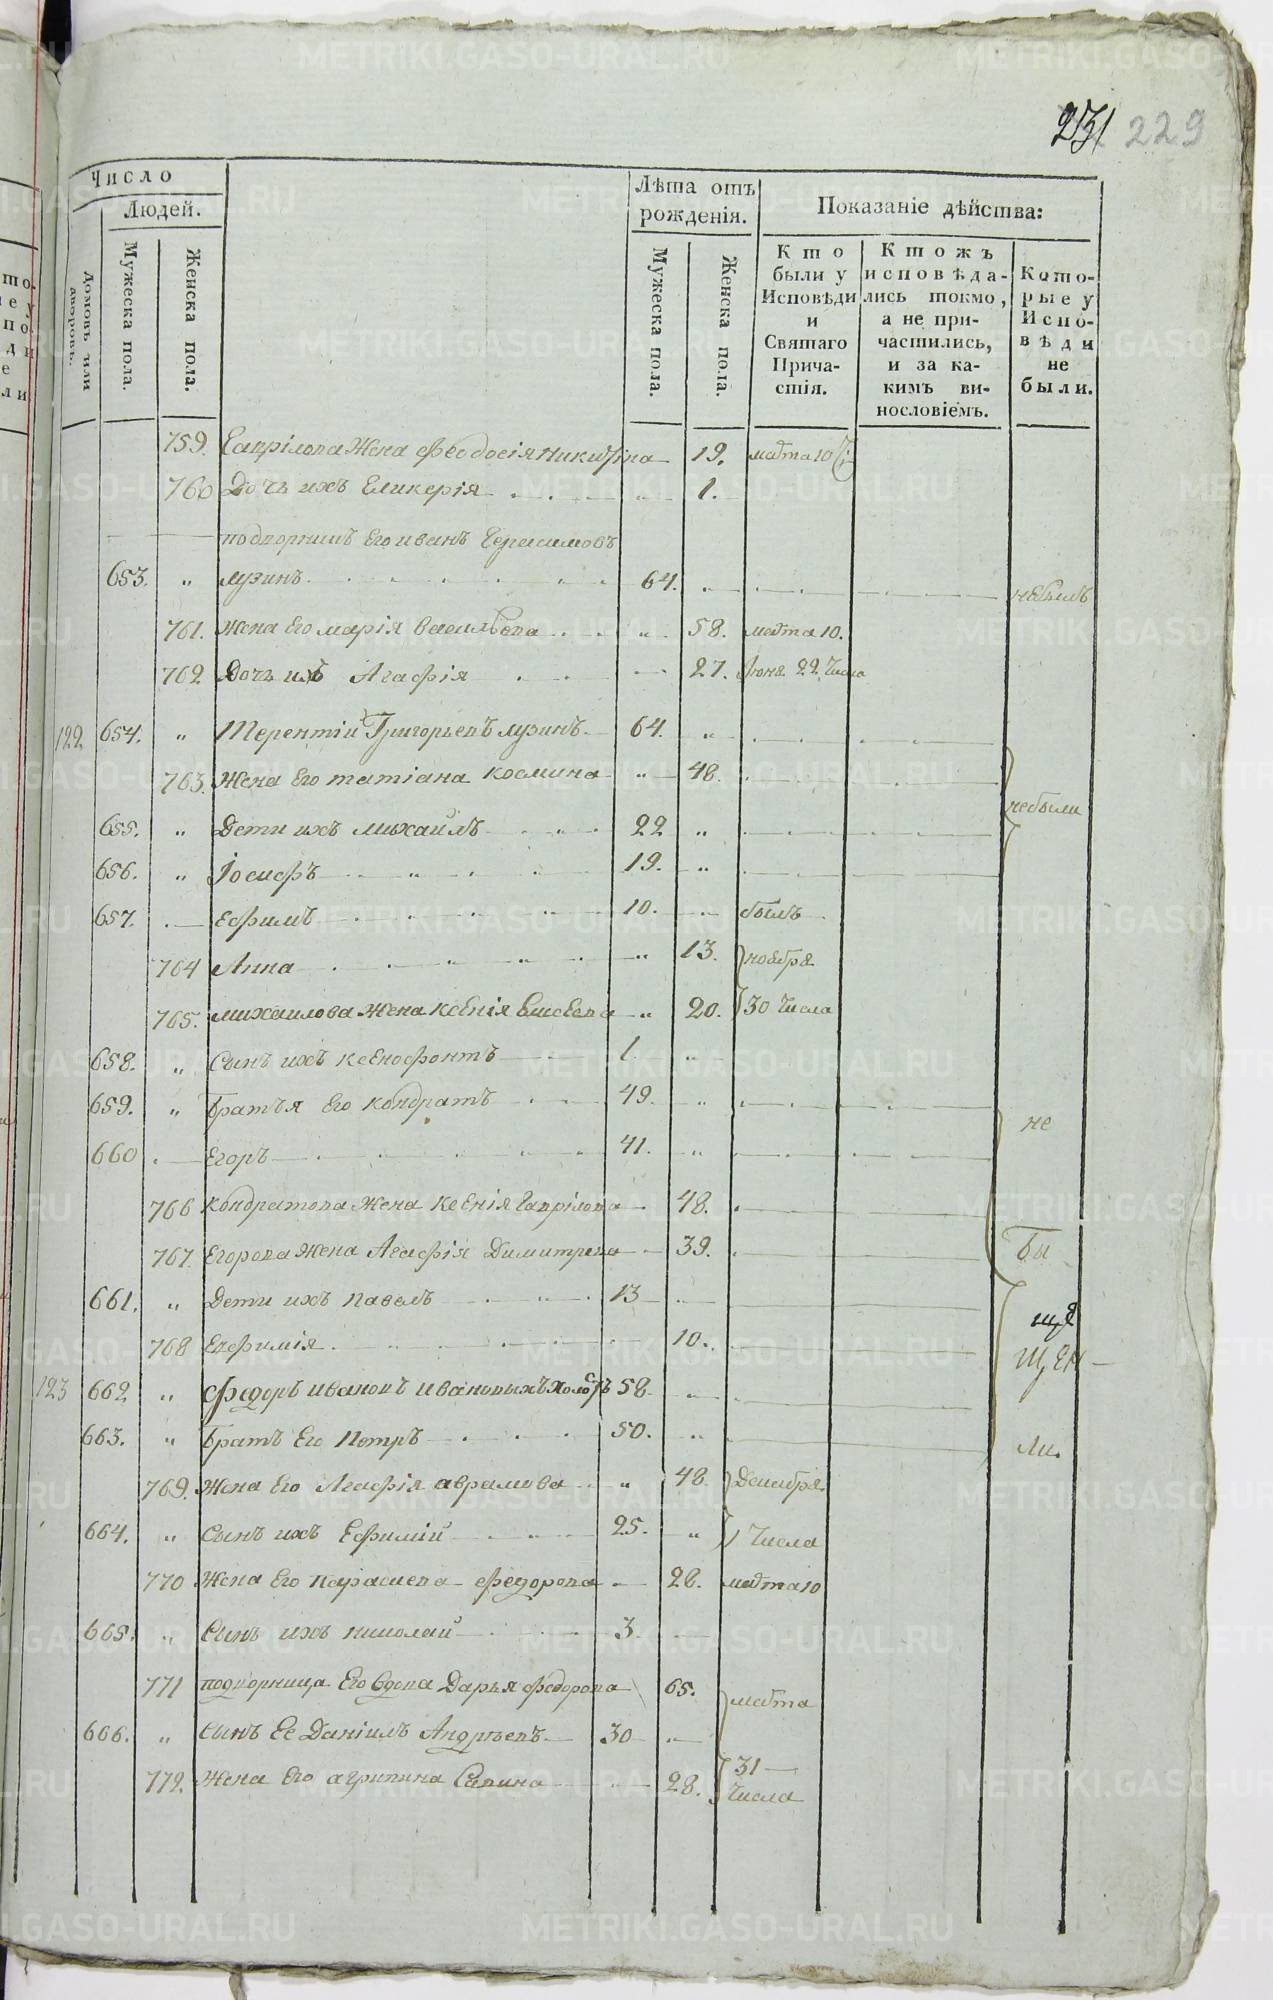 231 229
Число
Людей.
Домовъ или дворовъ.
Мужеска пола.
Женска пола.
Лѣта отъ рожденія.
Мужеска пола.
Женска пола.
Показаніе дѣйства:
Кто были у Исповѣди и Святаго Прича-стія.
Ктожъ исповѣда-лись токмо, а не при-частились, и за ка-кимъ ви-нословіемъ.
Кото-рые у Испо-вѣди не были.
759. Гаврілова Жена Феодосія Никитіна 19. марта 10
760 Дочь ихъ Гликерія 1.
подворникъ Его иванъ Герасимовъ
653. „ лузинъ 64. небылъ
761. Жена Его марія васильева „ 58. марта 10.
762 Дочь ихъ Агафія 27. Июня 22 Числа
122 654. „ Терентій Григорьевъ лузинъ 64. „
763. Жена Его татіана космина „ 48.
небыли
655. „ Дети ихъ михаилъ 22 „
656. „ Іосифъ 19. „
657. Ефимъ 10. былъ
764 Анна „ 13. ноября
765. михаилова Жена ксенія Елисеева „ 20. 30 Числа
658. „ Сынъ ихъ ксенофонтъ 1
659. „ братья Его кондратъ 49. „
не
660 Егоръ 41. „
766 кондратова Жена ксенія гаврілова 48.
767. Егорова Жена Агафія Димитрева 39. бы
661. „ Дети ихъ павелъ 13 „
768 Евфимія 10.
123 662 „ Федоръ ивановъ ивановыхъ холостъ 58. „
663. „ братъ Его Петръ 50. „ ли.
769. Жена Его Агафія аврамова „ 48. Декабря
664. „ Сынъ ихъ Ефимій 25. „ Числа
770 Жена Его парасковья федорова 28. марта 10
665. „ Сынъ ихъ николай 3.
771 подворница Его вдова Дарья федорова 65. марта
666. „ Сынъ Ее Даніилъ Андреевъ 30 „
772. Жена Его агрипина Савина „ 28. 31
Числа
METRIKI.GASO-URAL.RU